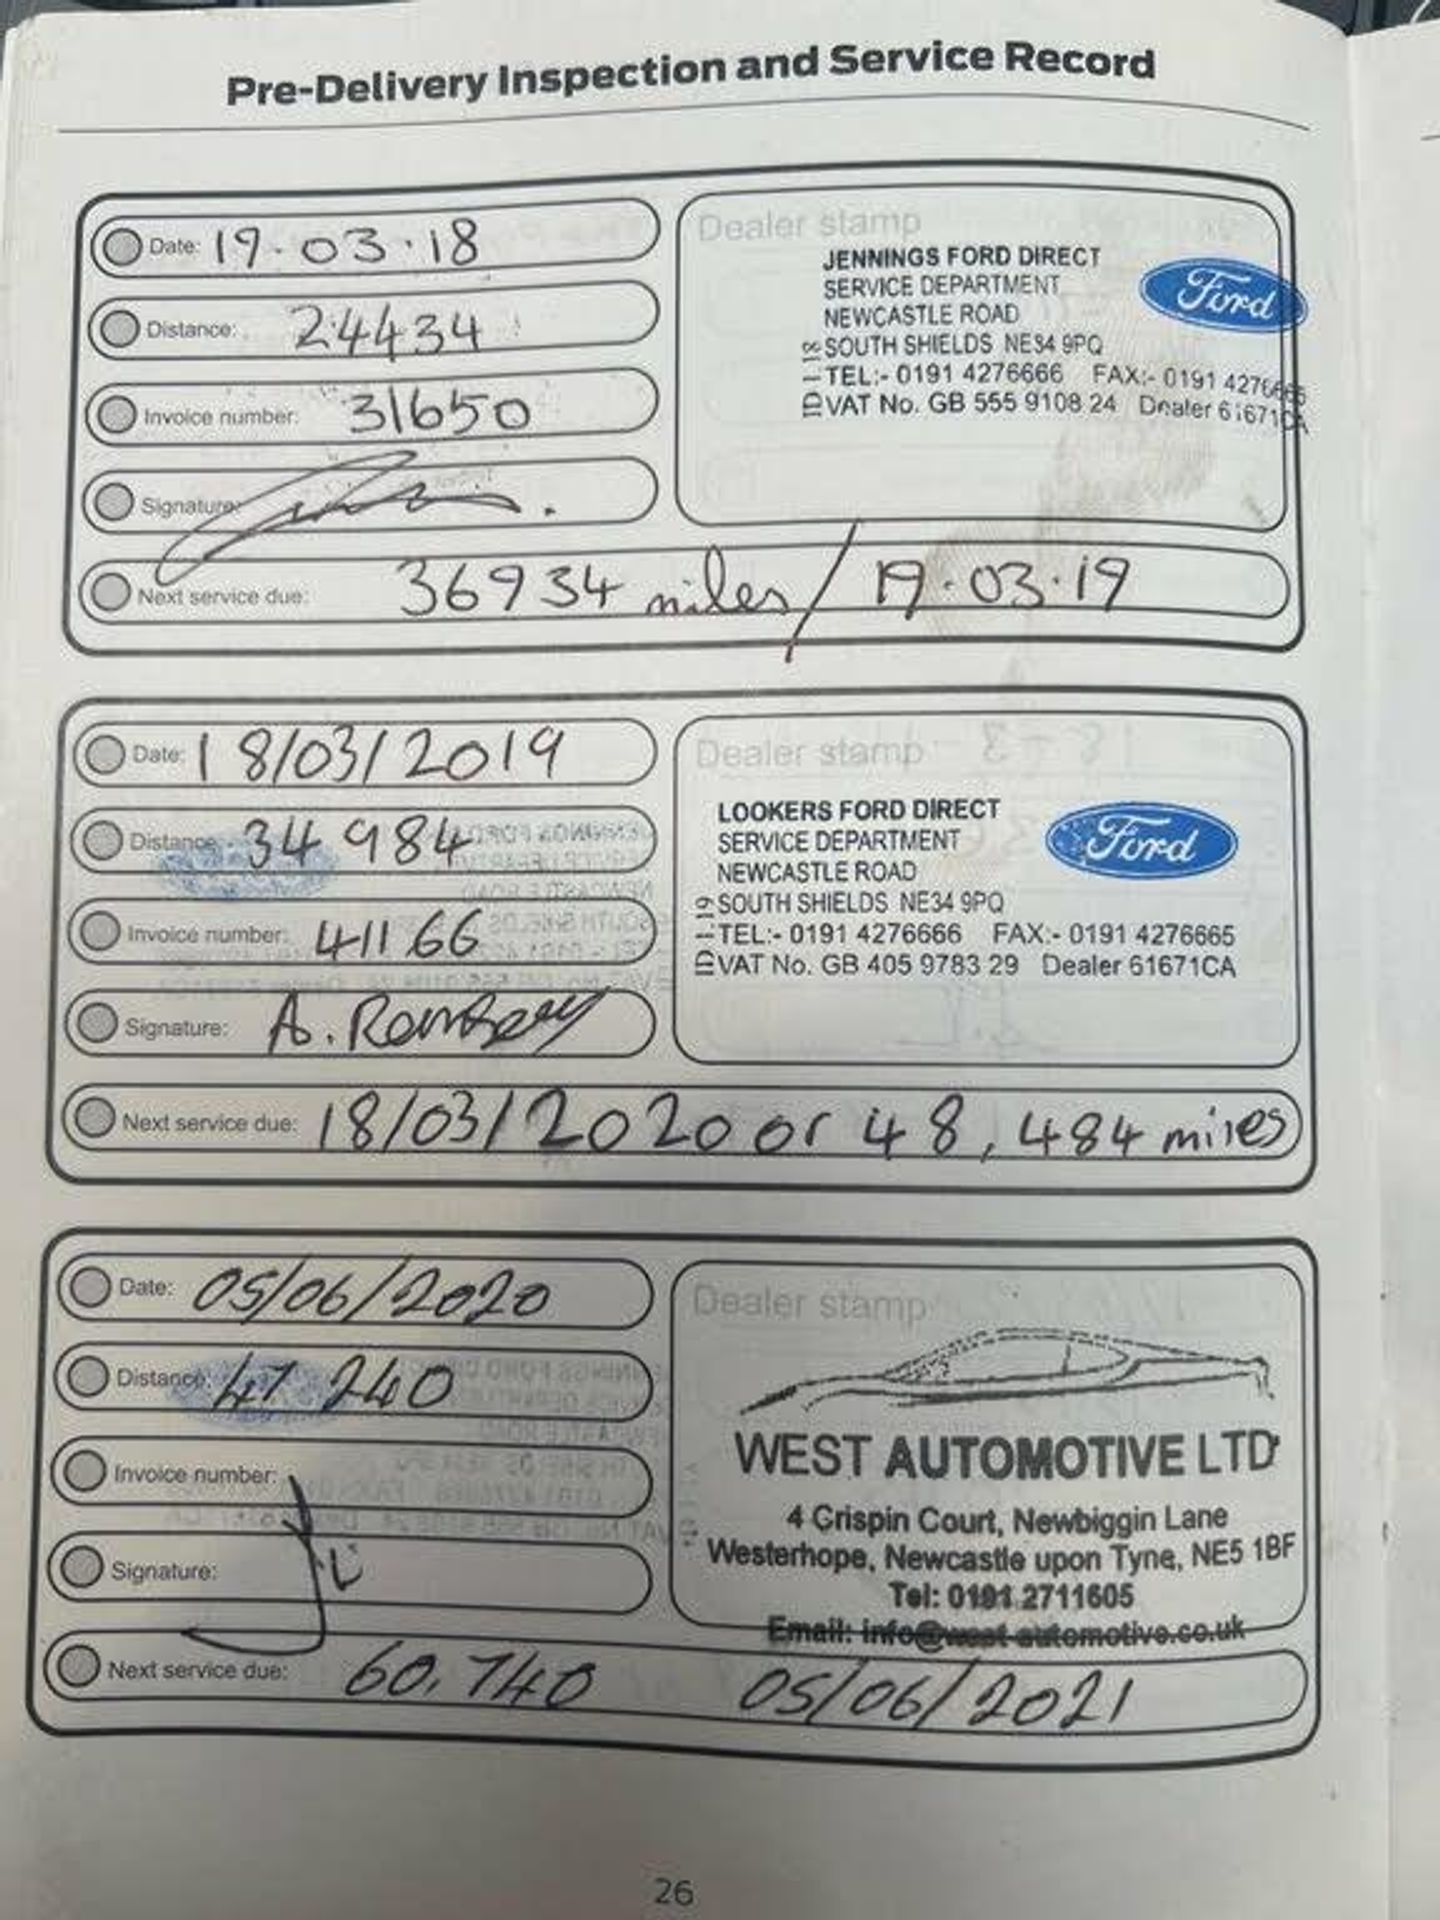 Pre-Delivery Inspection and Service Record
Date: 19.03.18
Distance: 24434
Invoice number: 31650
Signature:
Next service due: 36934 miles / 19.03.19
Dealer stamp
JENNINGS FORD DIRECT
SERVICE DEPARTMENT
NEWCASTLE ROAD
SOUTH SHIELDS NE34 9PQ
TEL:- 0191 4276666 FAX:- 0191 4276665
VAT No. GB 555 9108 24 Dealer 61671CA
ID 1 18
Ford
Date: 18/03/2019
Distance: 34984
Invoice number: 41166
Signature: A.
Next service due: 18/03/2020 or 48,484 miles
Dealer stamp
LOOKERS FORD DIRECT
SERVICE DEPARTMENT
NEWCASTLE ROAD
SOUTH SHIELDS NE34 9PQ
TEL:- 0191 4276666 FAX:- 0191 4276665
VAT No. GB 405 9783 29 Dealer 61671CA
ID 1 19
Ford
Date: 05/06/2020
Distance: 47240
Invoice number:
Signature:
Next service due: 60,740 05/06/2021
Dealer stamp
WEST AUTOMOTIVE LTD
4 Crispin Court, Newbiggin Lane
Westerhope, Newcastle upon Tyne, NE5 1BF
Tel: 0191 2711605
Email: info@west-automotive.co.uk
26